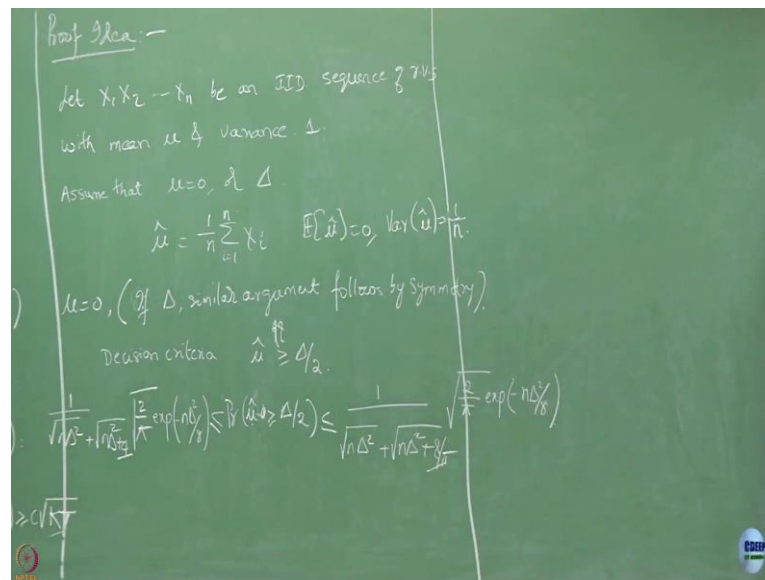 Proof Idea:-
Let X₁ X₂ --- Xₙ be an IID sequence of r.v.s
with mean μ & variance 1.
Assume that μ=0, or Δ.
μ̂ = 1/n ∑_{i=1}^{n} Xᵢ   E[μ̂]=0, Var(μ̂)=1/n.
) μ=0, (If Δ, similar argument follows by symmetry).
Decision criteria μ̂ ≥ Δ/2.
: 1/(√nΔ² + √nΔ²+4) √2/π exp(-nΔ²/8) ≤ Pr(μ̂ ≥ Δ/2) ≤ 1/(√nΔ² + √nΔ²+8/π) √2/π exp(-nΔ²/8)
) ≥ C√KT
NPTEL
CDEEP